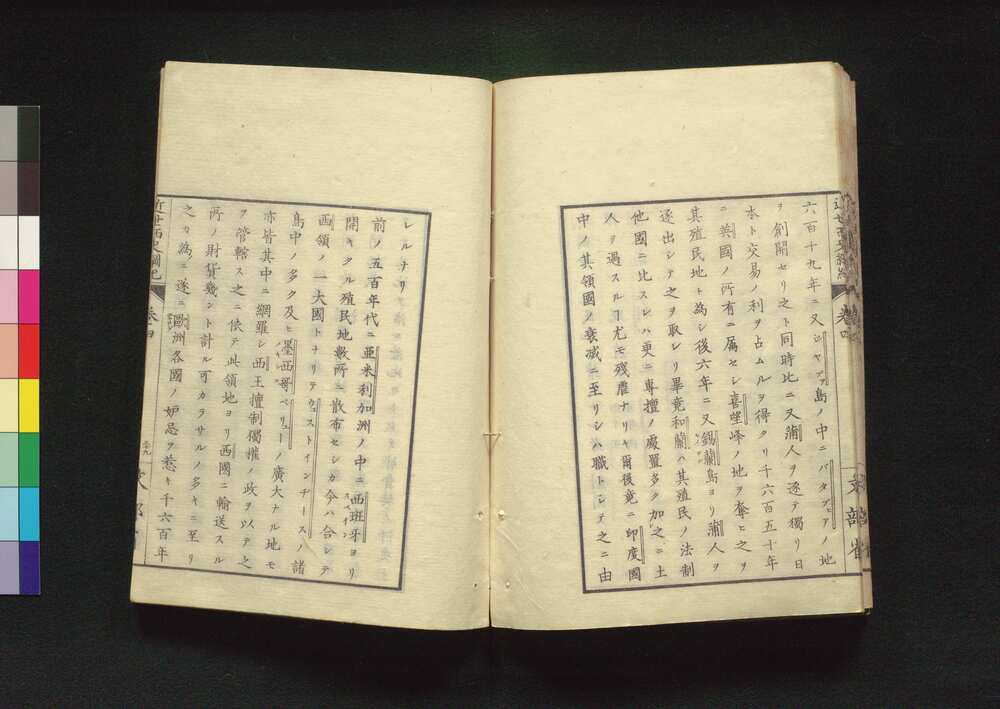 近世西史綱紀 卷四 文部省
六百十九年ニ又ジャヷァ島ノ中ニバタヴヒアノ地
ヲ創開セリ之ト同時比ニ又蒲人ヲ逐テ獨リ日
本ト交易ノ利ヲ占ムルヲ得タリ千六百五十年
ニ英國ノ所有ニ属セシ喜望峰ノ地ヲ奪ヒ之ヲ
其殖民地ト為シ後六年ニ又錫蘭島ヨリ蒲人ヲ
逐出シテ之ヲ取レリ畢竟和蘭ハ其殖民ノ法制
他國ニ比スレハ更ニ専擅ノ處置多ク加之ニ土
人ヲ遇スルヿ尤モ残虐ナリヤ爾後竟ニ印度國
中ノ其領國ノ衰滅ニ至リシハ職トシテ之ニ由
レルナリ
前ノ五百年代ニ亜米利加洲ノ中ニ西班牙ヨリ
開キタル殖民地數所ニ散布セシカ今ハ合シテ
西領ノ一大國トナリテウェストインヂースノ諸
島中ノ多ク及ヒ墨西哥ペリューノ廣大ナル地モ
亦皆其中ニ網羅シ西王擅制獨權ノ政ヲ以テ之
ヲ管轄ス之ニ依テ此領地ヨリ西國ニ輸送スル
所ノ財貨幾ント計ル可カラサルノ多キニ至リ
之カ為ニ遂ニ歐洲各國ノ妒忌ヲ惹キ千六百年
近世西史綱紀 卷四